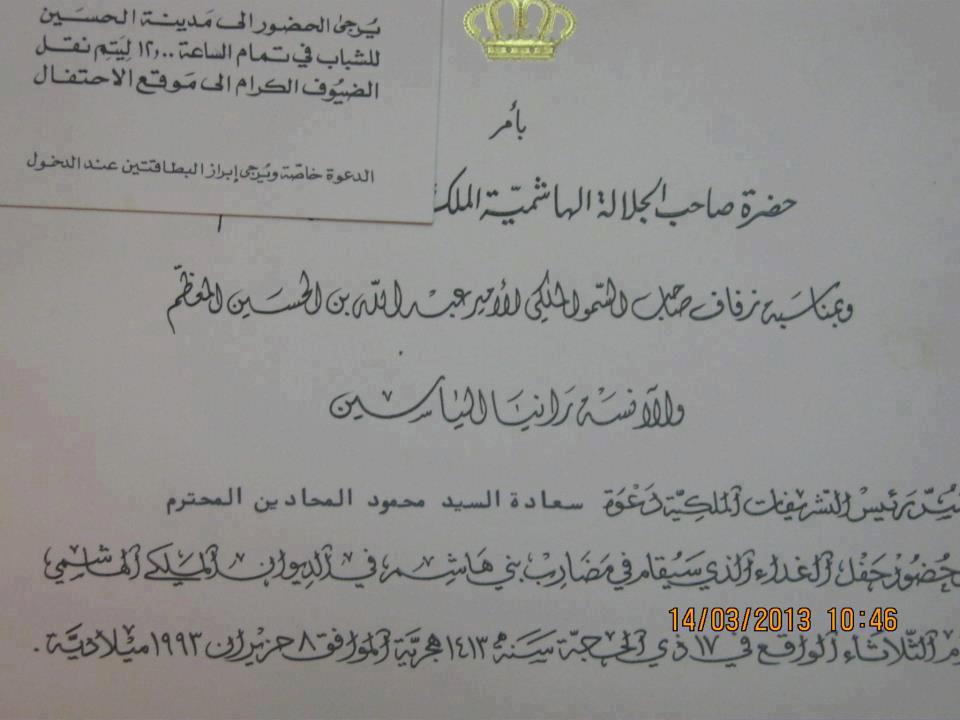 يُرجى الحضور الى مَدينة الحسَين
للشباب في تمام الساعة ١٢٫٠٠ ليَتِم نقل
الضيُوف الكرام الى مَوقع الاحتفال
الدعوة خاصّة ويُرجى إبراز البطاقتين عند الدخول
بأمر
حضرة صاحب الجلالة الهاشميّة الملك
وبمناسبة زفاف صاحب السّمو الملكي الأمير عبد الله بن الحسَين المعظّم
والآنسة رَانيَا اليَاسين
رَئيس التشريفات الملكيّة دَعْوَة سعادة السيد محمود المحادين المحترم
حُضُورْ حَفْل الغداء الذي سَيُقام في مَضَارب بني هَاشم في الدِيوان المَلِكي الهَاشِمي
الثّلاثَاء الواقع في ١٧ ذي الحِجّة سَنَة ١٤١٣ هجريّة الموَافق ٨ حزيران ١٩٩٣ ميْلاديَّة .
14/03/2013 10:46